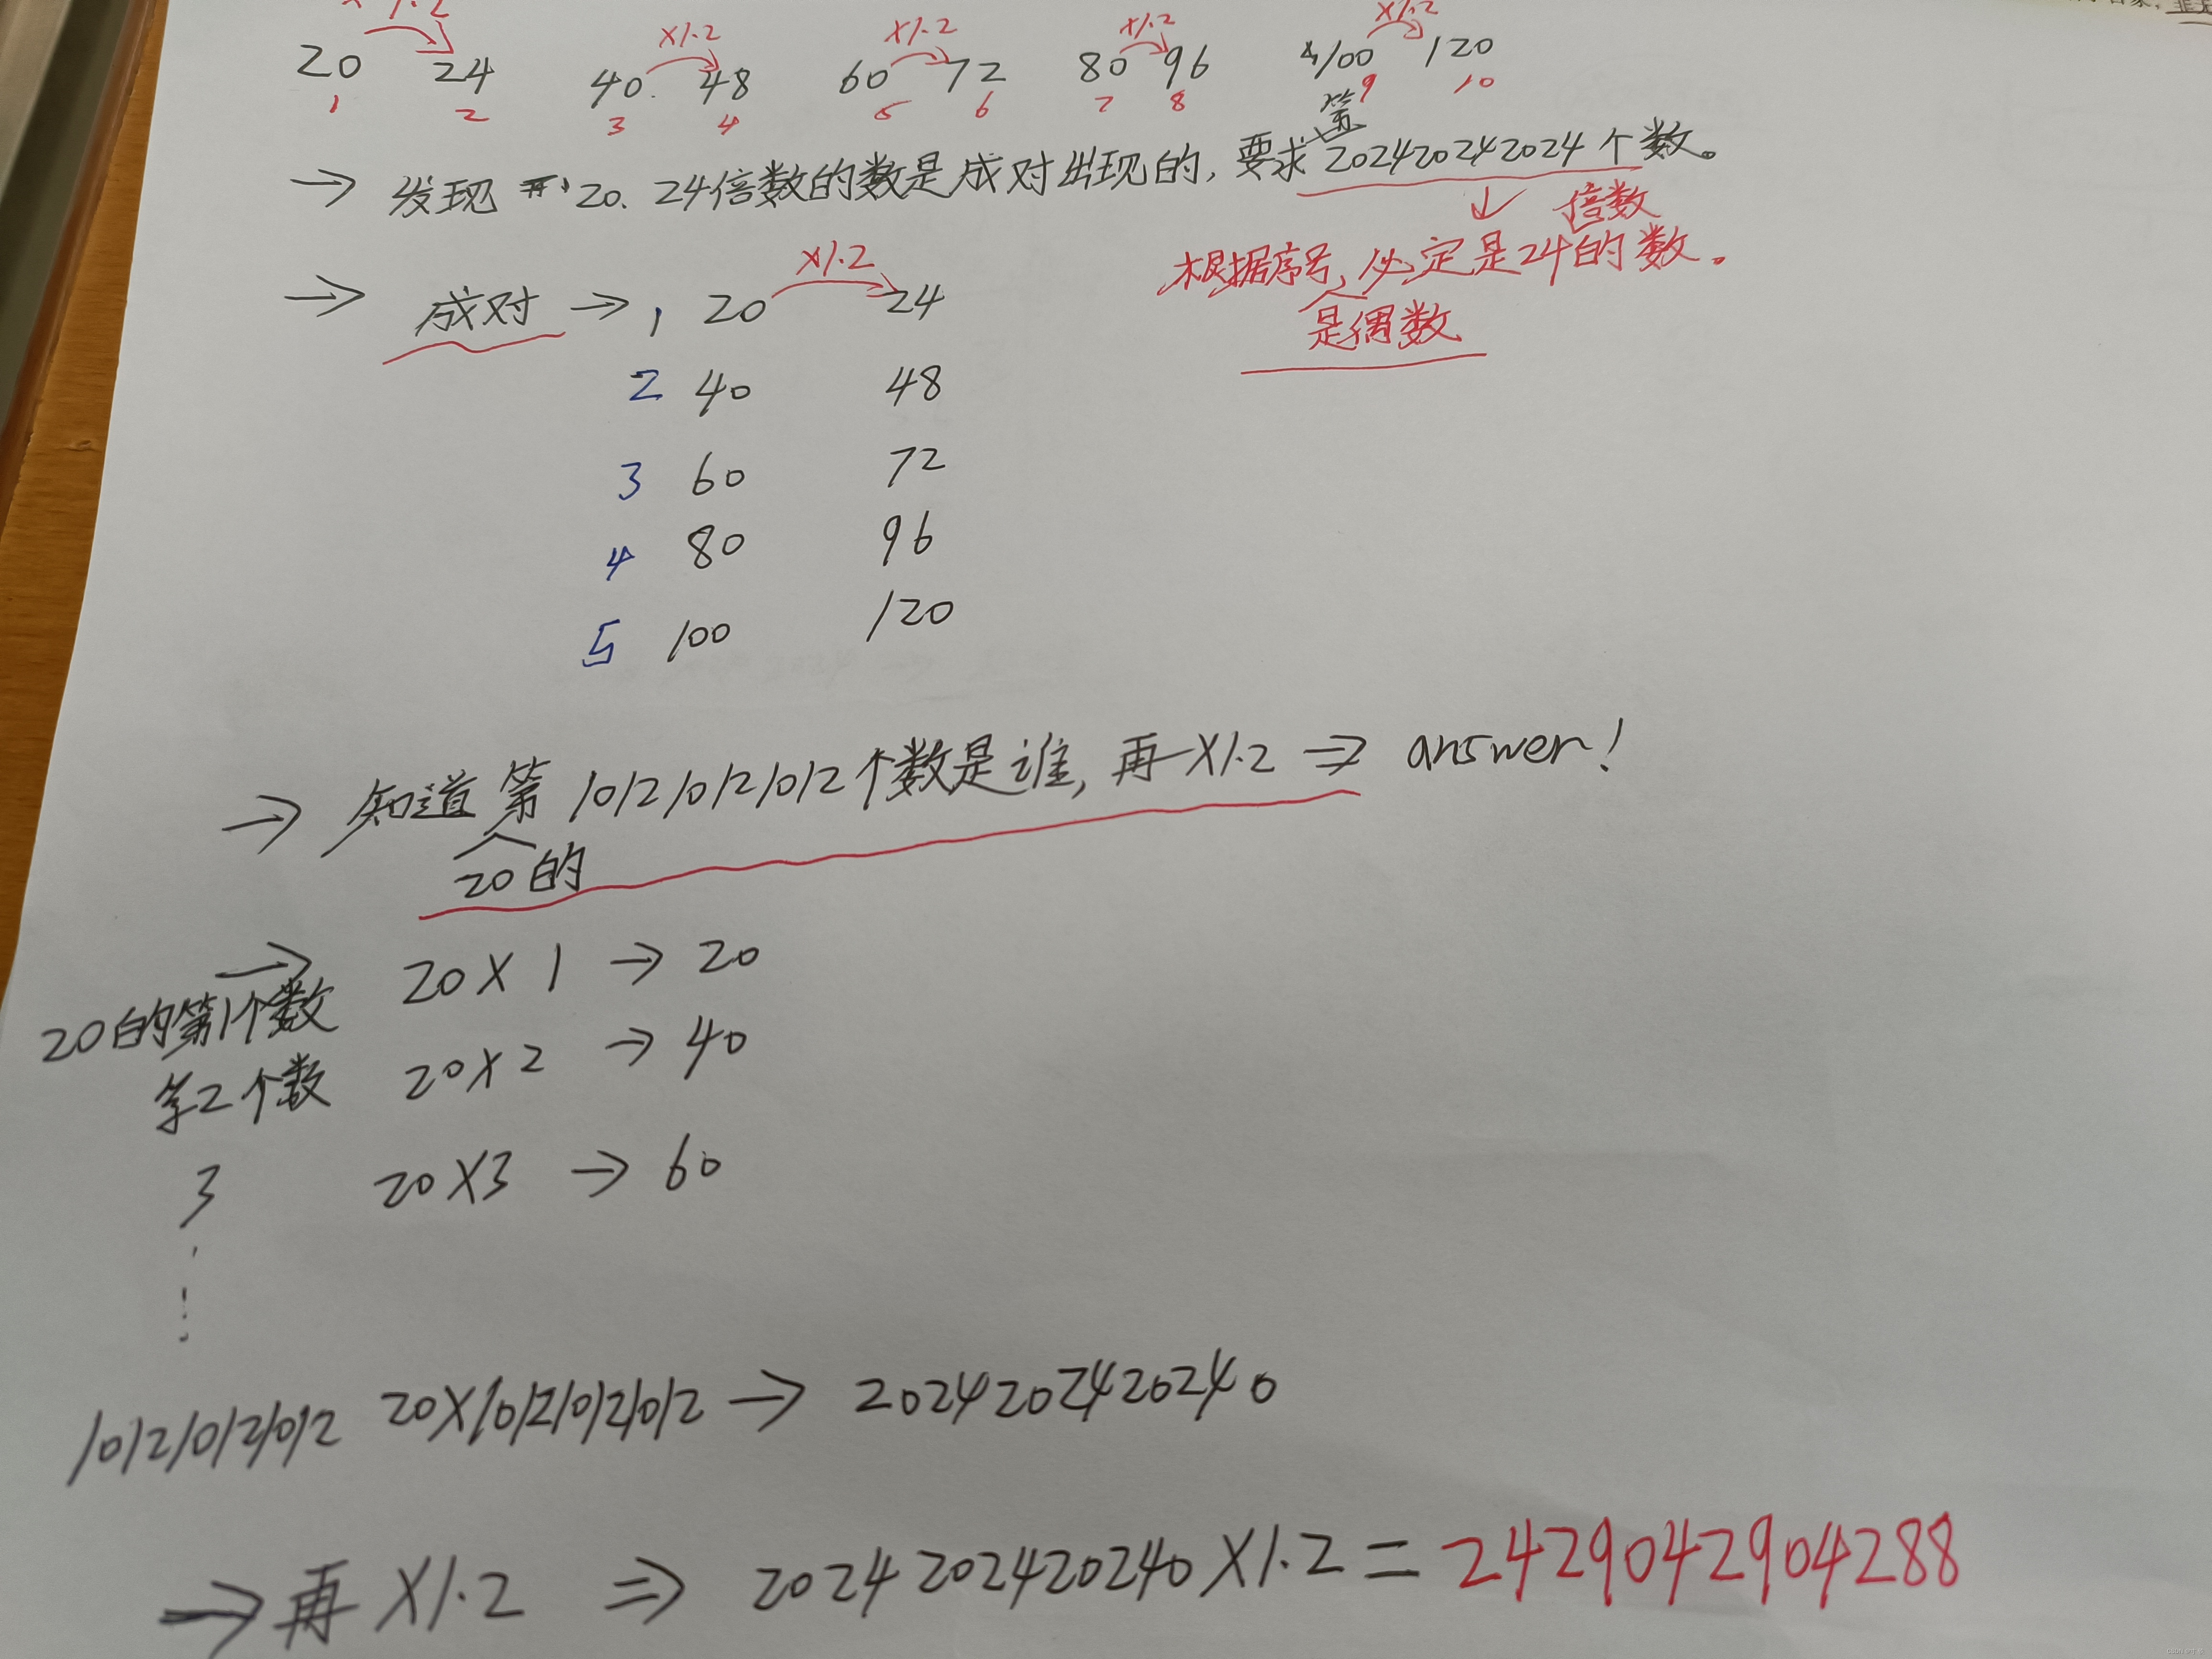 X1.2 X1.2 X1.2 X1.2 X1.2
20 24 40 48 60 72 80 96 100 120
1 2 3 4 5 6 7 8 9 10
→ 发现 20、24倍数的数是成对出现的,要求第202420242024个数。
↓
根据序号,必定是24的倍数的数。
是偶数
→ 成对 → 1 20 X1.2 24
2 40 48
3 60 72
4 80 96
5 100 120
→ 知道20的第101210121012个数是谁,再X1.2 ⇒ answer!
→
20的第1个数 20X1 → 20
第2个数 20X2 → 40
3 20X3 → 60
101210121012 20X101210121012 → 2024202420240
→ 再X1.2 ⇒ 2024202420240X1.2=2429042904288